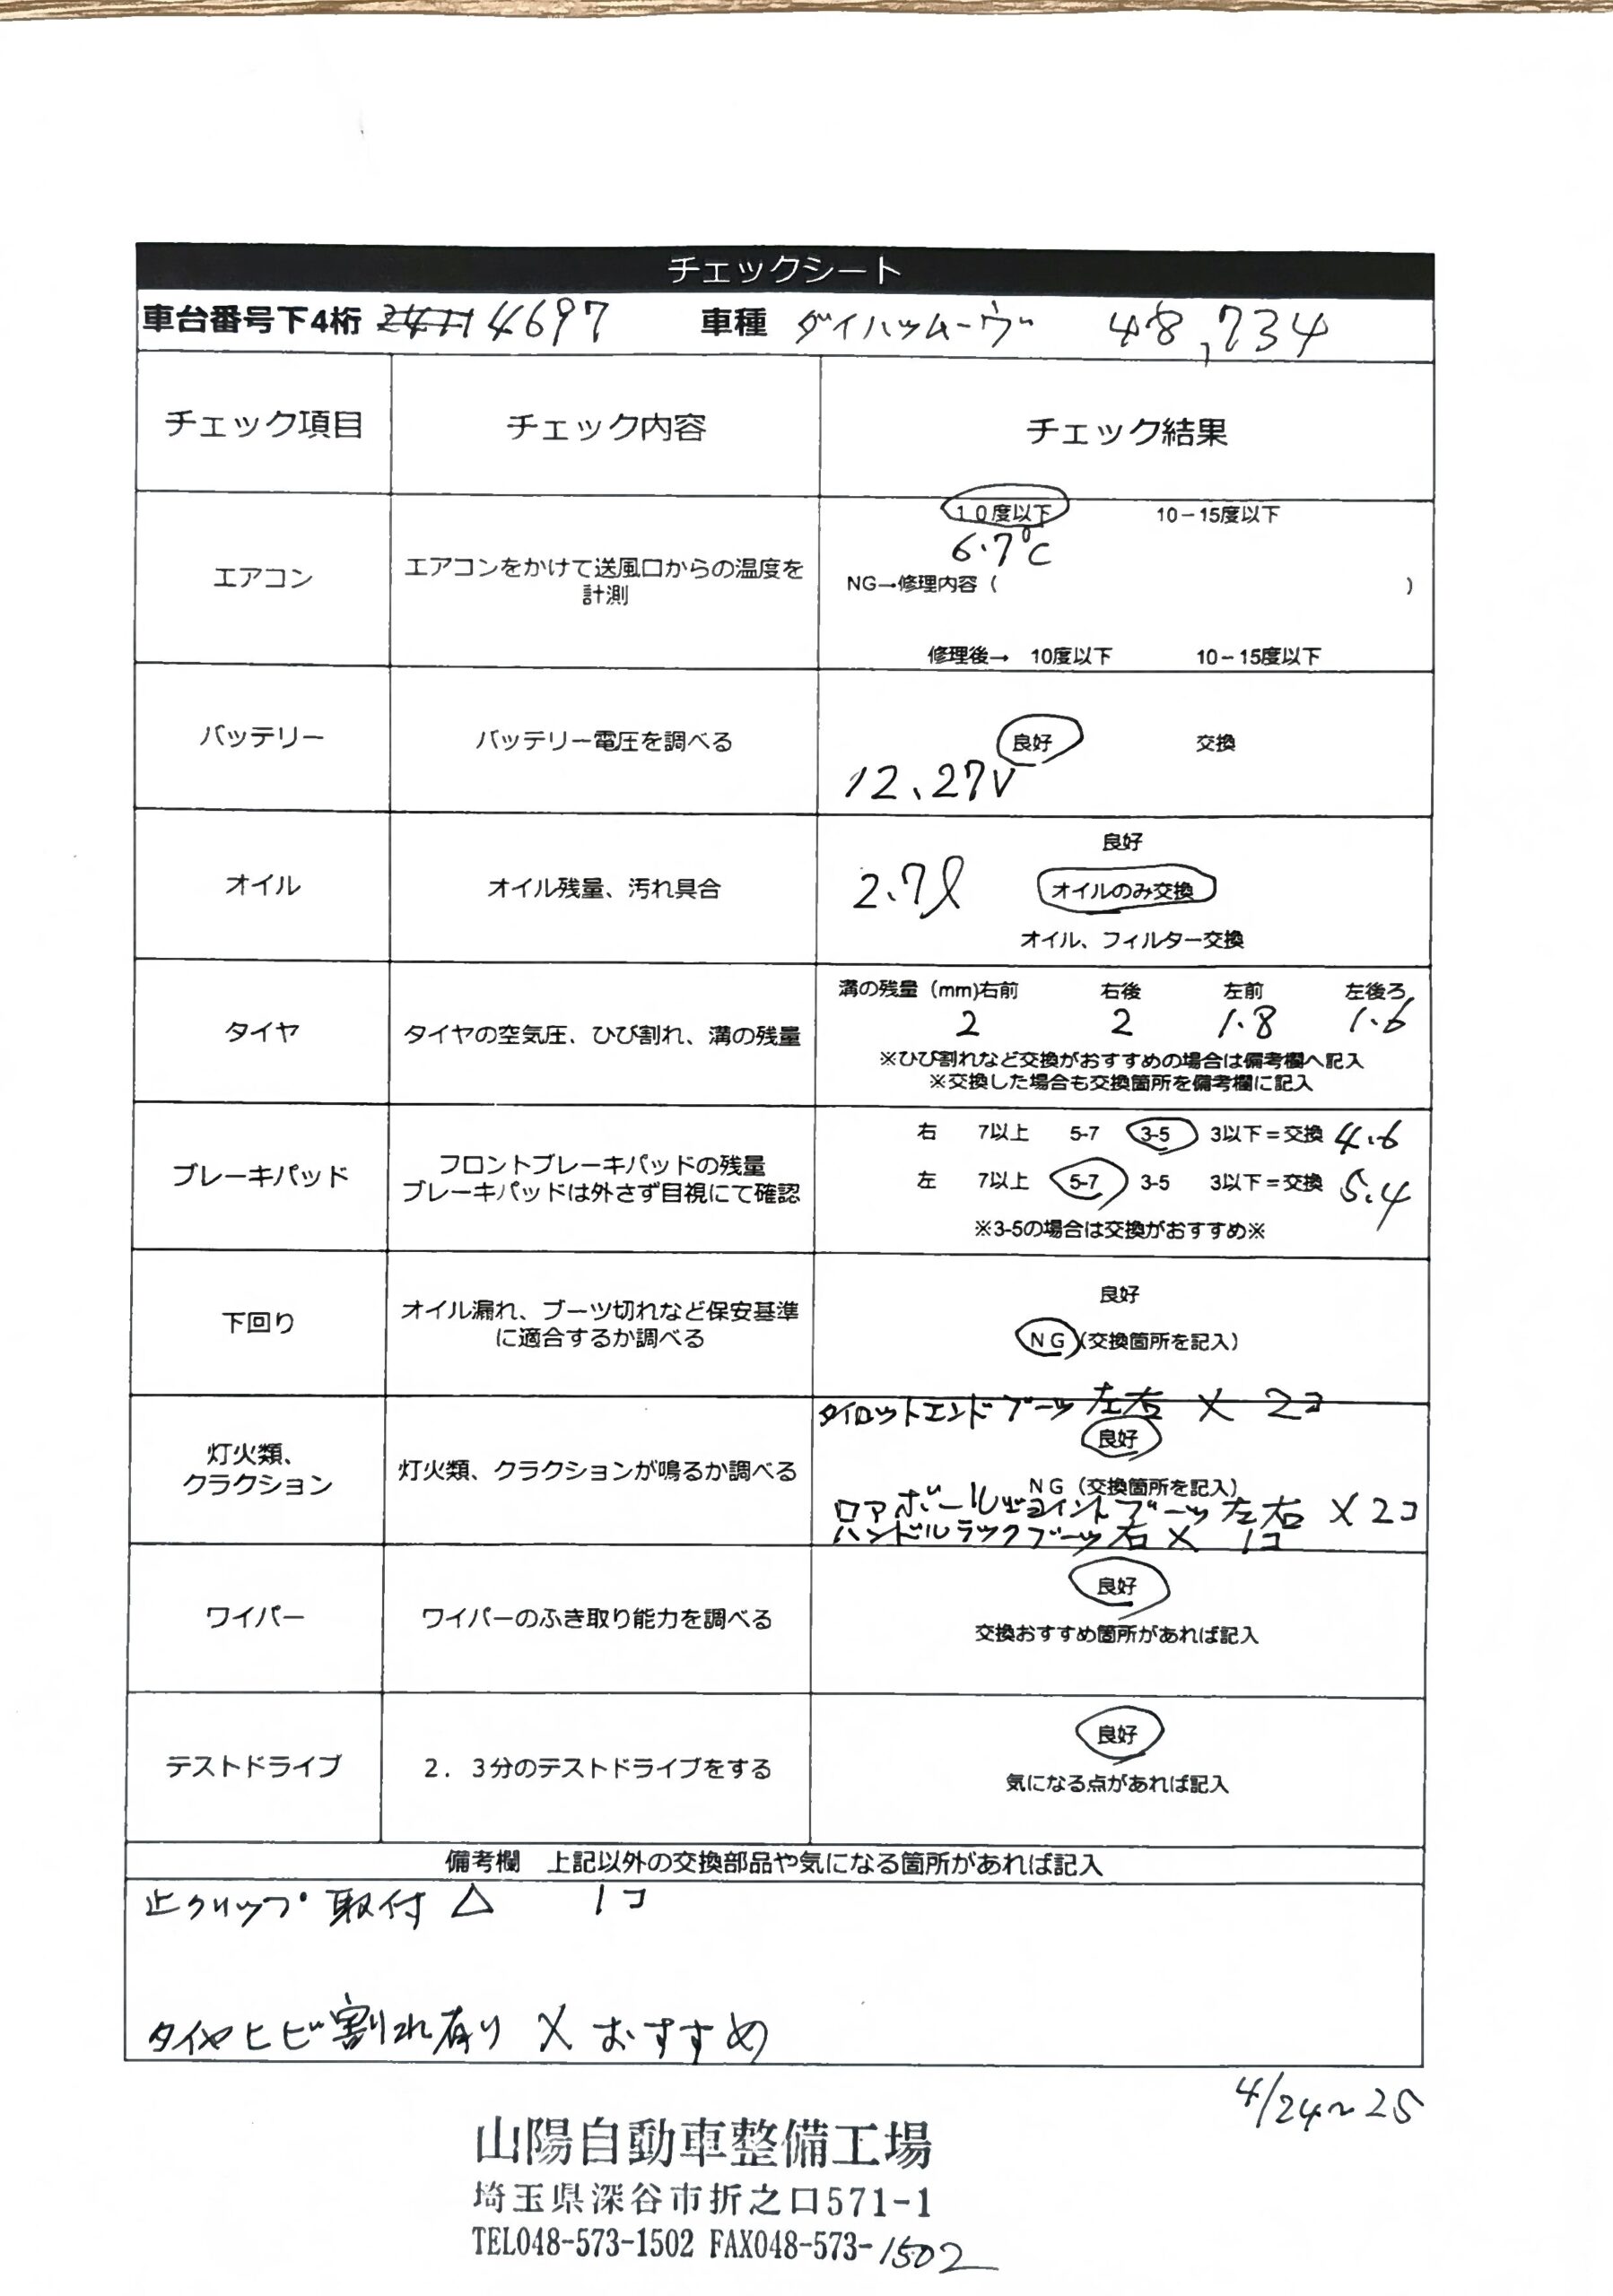 チェックシート
車台番号下4桁 4697 車種 ダイハツムーヴ 48,734
チェック項目 チェック内容 チェック結果
エアコン エアコンをかけて送風口からの温度を計測
10度以下 10－15度以下
6.7℃
NG→修理内容（ ）
修理後→ 10度以下 10－15度以下
バッテリー バッテリー電圧を調べる 良好 交換
12.27V
オイル オイル残量、汚れ具合
良好
2.7ℓ オイルのみ交換
オイル、フィルター交換
タイヤ タイヤの空気圧、ひび割れ、溝の残量
溝の残量（mm)右前 右後 左前 左後ろ
2 2 1.8 1.6
※ひび割れなど交換がおすすめの場合は備考欄へ記入
※交換した場合も交換箇所を備考欄に記入
ブレーキパッド フロントブレーキパッドの残量
ブレーキパッドは外さず目視にて確認
右 7以上 5-7 3-5 3以下＝交換 4.6
左 7以上 5-7 3-5 3以下＝交換 5.4
※3-5の場合は交換がおすすめ※
下回り オイル漏れ、ブーツ切れなど保安基準
に適合するか調べる
良好
NG（交換箇所を記入）
タイロットエンドブーツ 左右 × 2コ
灯火類、
クラクション 灯火類、クラクションが鳴るか調べる
良好
NG（交換箇所を記入）
ロアボールジョイントブーツ 左右 × 2コ
ハンドルラックブーツ 右 × 1コ
ワイパー ワイパーのふき取り能力を調べる
良好
交換おすすめ箇所があれば記入
テストドライブ 2．3分のテストドライブをする
良好
気になる点があれば記入
備考欄 上記以外の交換部品や気になる箇所があれば記入
止クリップ 取付 △ 1コ
タイヤヒビ割れ有り × おすすめ
4/24~25
山陽自動車整備工場
埼玉県深谷市折之口571-1
TEL048-573-1502 FAX048-573-1502